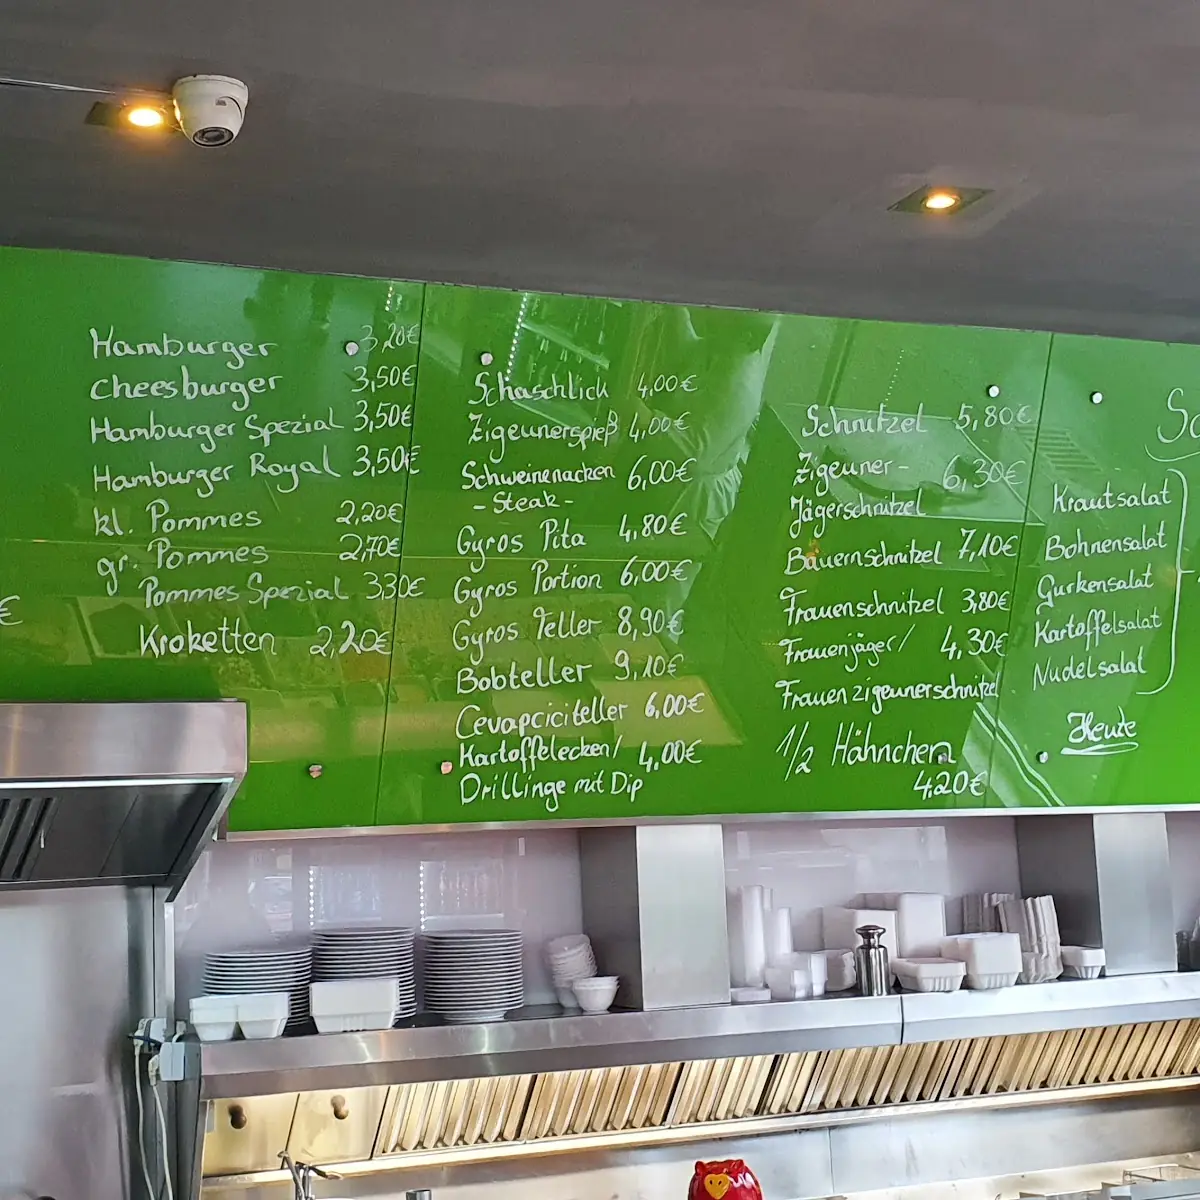 €
Hamburger 3,20€
Cheesburger 3,50€
Hamburger Spezial 3,50€
Hamburger Royal 3,50€
kl. Pommes 2,20€
gr. Pommes 2,70€
Pommes Spezial 3,30€
Kroketten 2,20€
Schaschlick 4,00€
Zigeunerspieß 4,00€
Schweinenacken 6,00€
- Steak -
Gyros Pita 4,80€
Gyros Portion 6,00€
Gyros Teller 8,90€
Bobteller 9,10€
Cevapciciteller 6,00€
Kartoffelecken/ 4,00€
Drillinge mit Dip
Schnitzel 5,80€
Zigeuner- 6,30€
Jägerschnitzel
Bauernschnitzel 7,10€
Frauenschnitzel 3,80€
Frauenjäger/ 4,30€
Frauenzigeunerschnitzel
1/2 Hähnchen
4,20€
Krautsalat
Bohnensalat
Gurkensalat
Kartoffelsalat
Nudelsalat
Heute